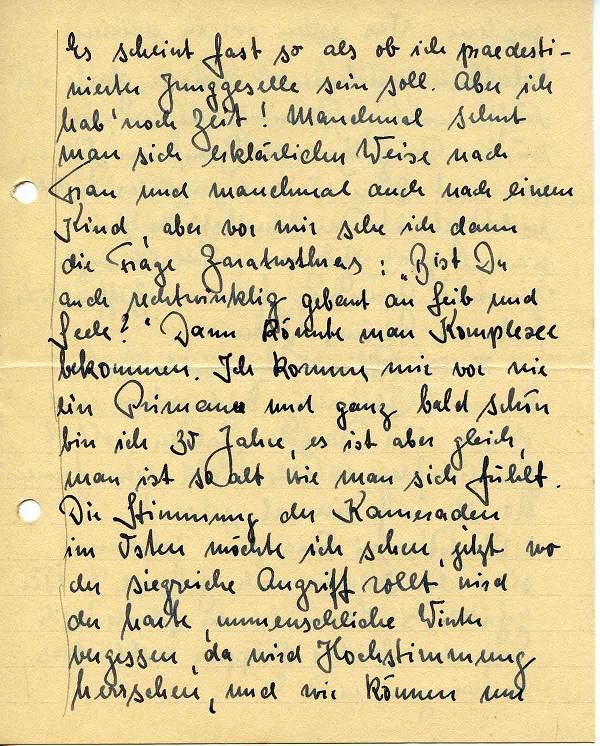 Es scheint fast so als ob ich praedesti-
nierter Junggeselle sein soll. Aber ich
hab' noch Zeit! Manchmal sehnt
man sich erklärlicher Weise nach
Frau und manchmal auch nach einem
Kind, aber vor mir sehe ich dann
die Frage Zarathustras: „Bist Du
auch rechtwinklig gebaut an Leib und
Seele?" Dann könnte man Komplexe
bekommen. Ich komme mir vor wie
ein Primaner und ganz bald schon
bin ich 30 Jahre, es ist aber gleich,
man ist so alt wie man sich fühlt.
Die Stimmung der Kameraden
im Osten möchte ich sehen, jetzt wo
der siegreiche Angriff rollt wird
der harte, unmenschliche Winter
vergessen, da wird Hochstimmung
herrschen, und wir können nur